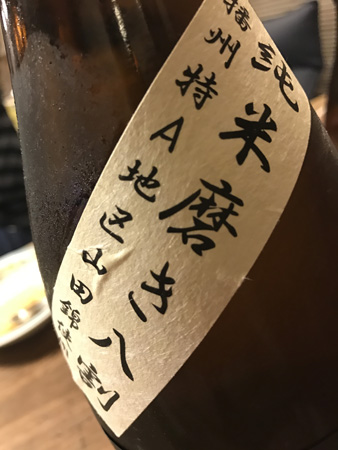 純米磨き八割
播州特A地区山田錦使用